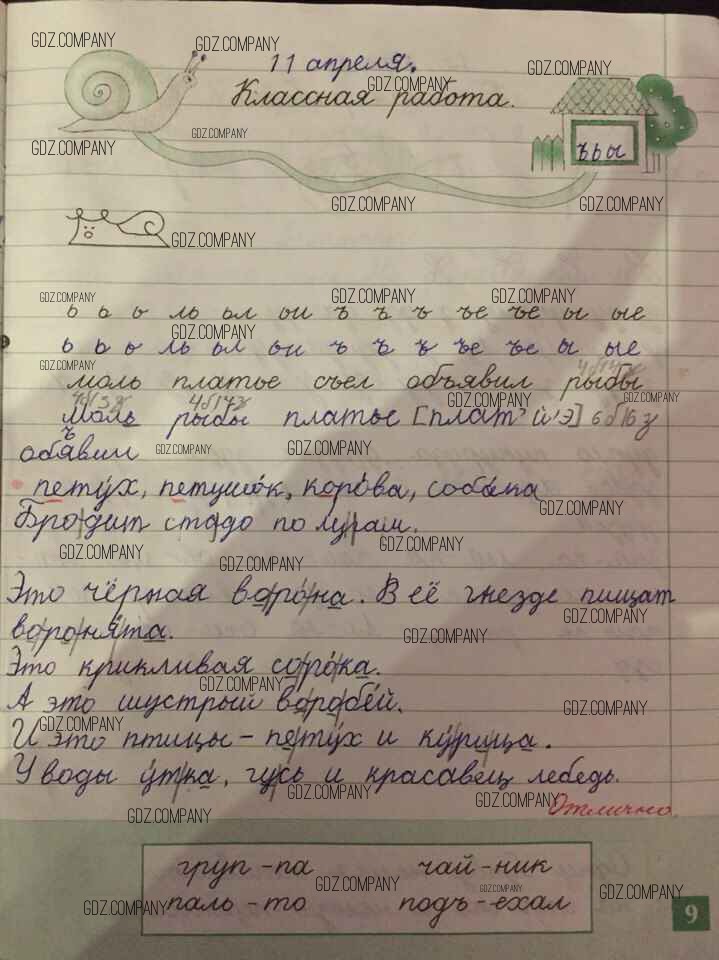 11 апреля.
Классная работа.
ъ ь ы
ь ь ь ль ьл ьи ъ ъ ъ ъе ъе ы ые
ь ь ь ль ьл ьи ъ ъ ъ ъе ъе ы ые
моль платье съел объявил рыбы
4б14з
4б3з 4б14з
моль рыбы платье [плат' й'э] 6 б 16 з
обявил
ъ
петух, петушок, корова, собака
Бродит стадо по лугам.
Это чёрная ворона. В её гнезде пищат
воронята.
Это крикливая сорока.
А это шустрый воробей.
И это птицы - петух и курица.
У воды утка, гусь и красавец лебедь.
Отлично.
груп - па чай - ник
паль - то подъ - ехал
9
GDZ.COMPANY